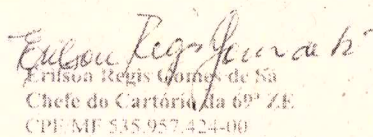 Erilson Regis Gomes de Sá
Erilson Regis Gomes de Sá
Chefe do Cartório da 69ª ZE
CPF/MF 535.957.424-00